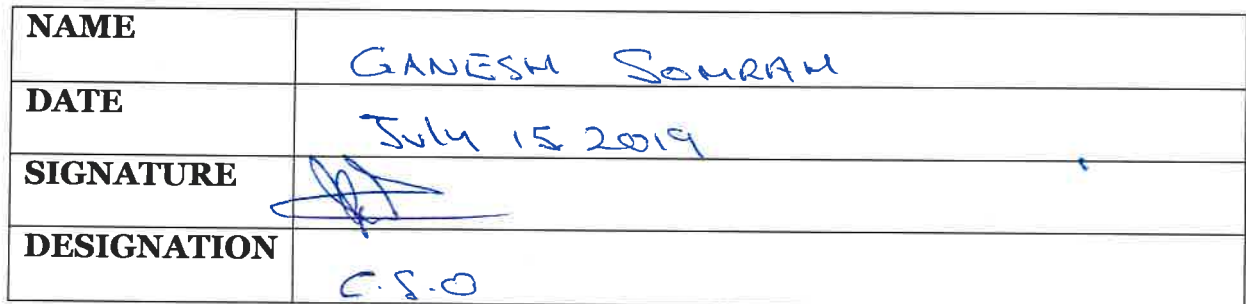 NAME
GANESH SOMRAH
DATE
July 15 2019
SIGNATURE
DESIGNATION
C.S.O